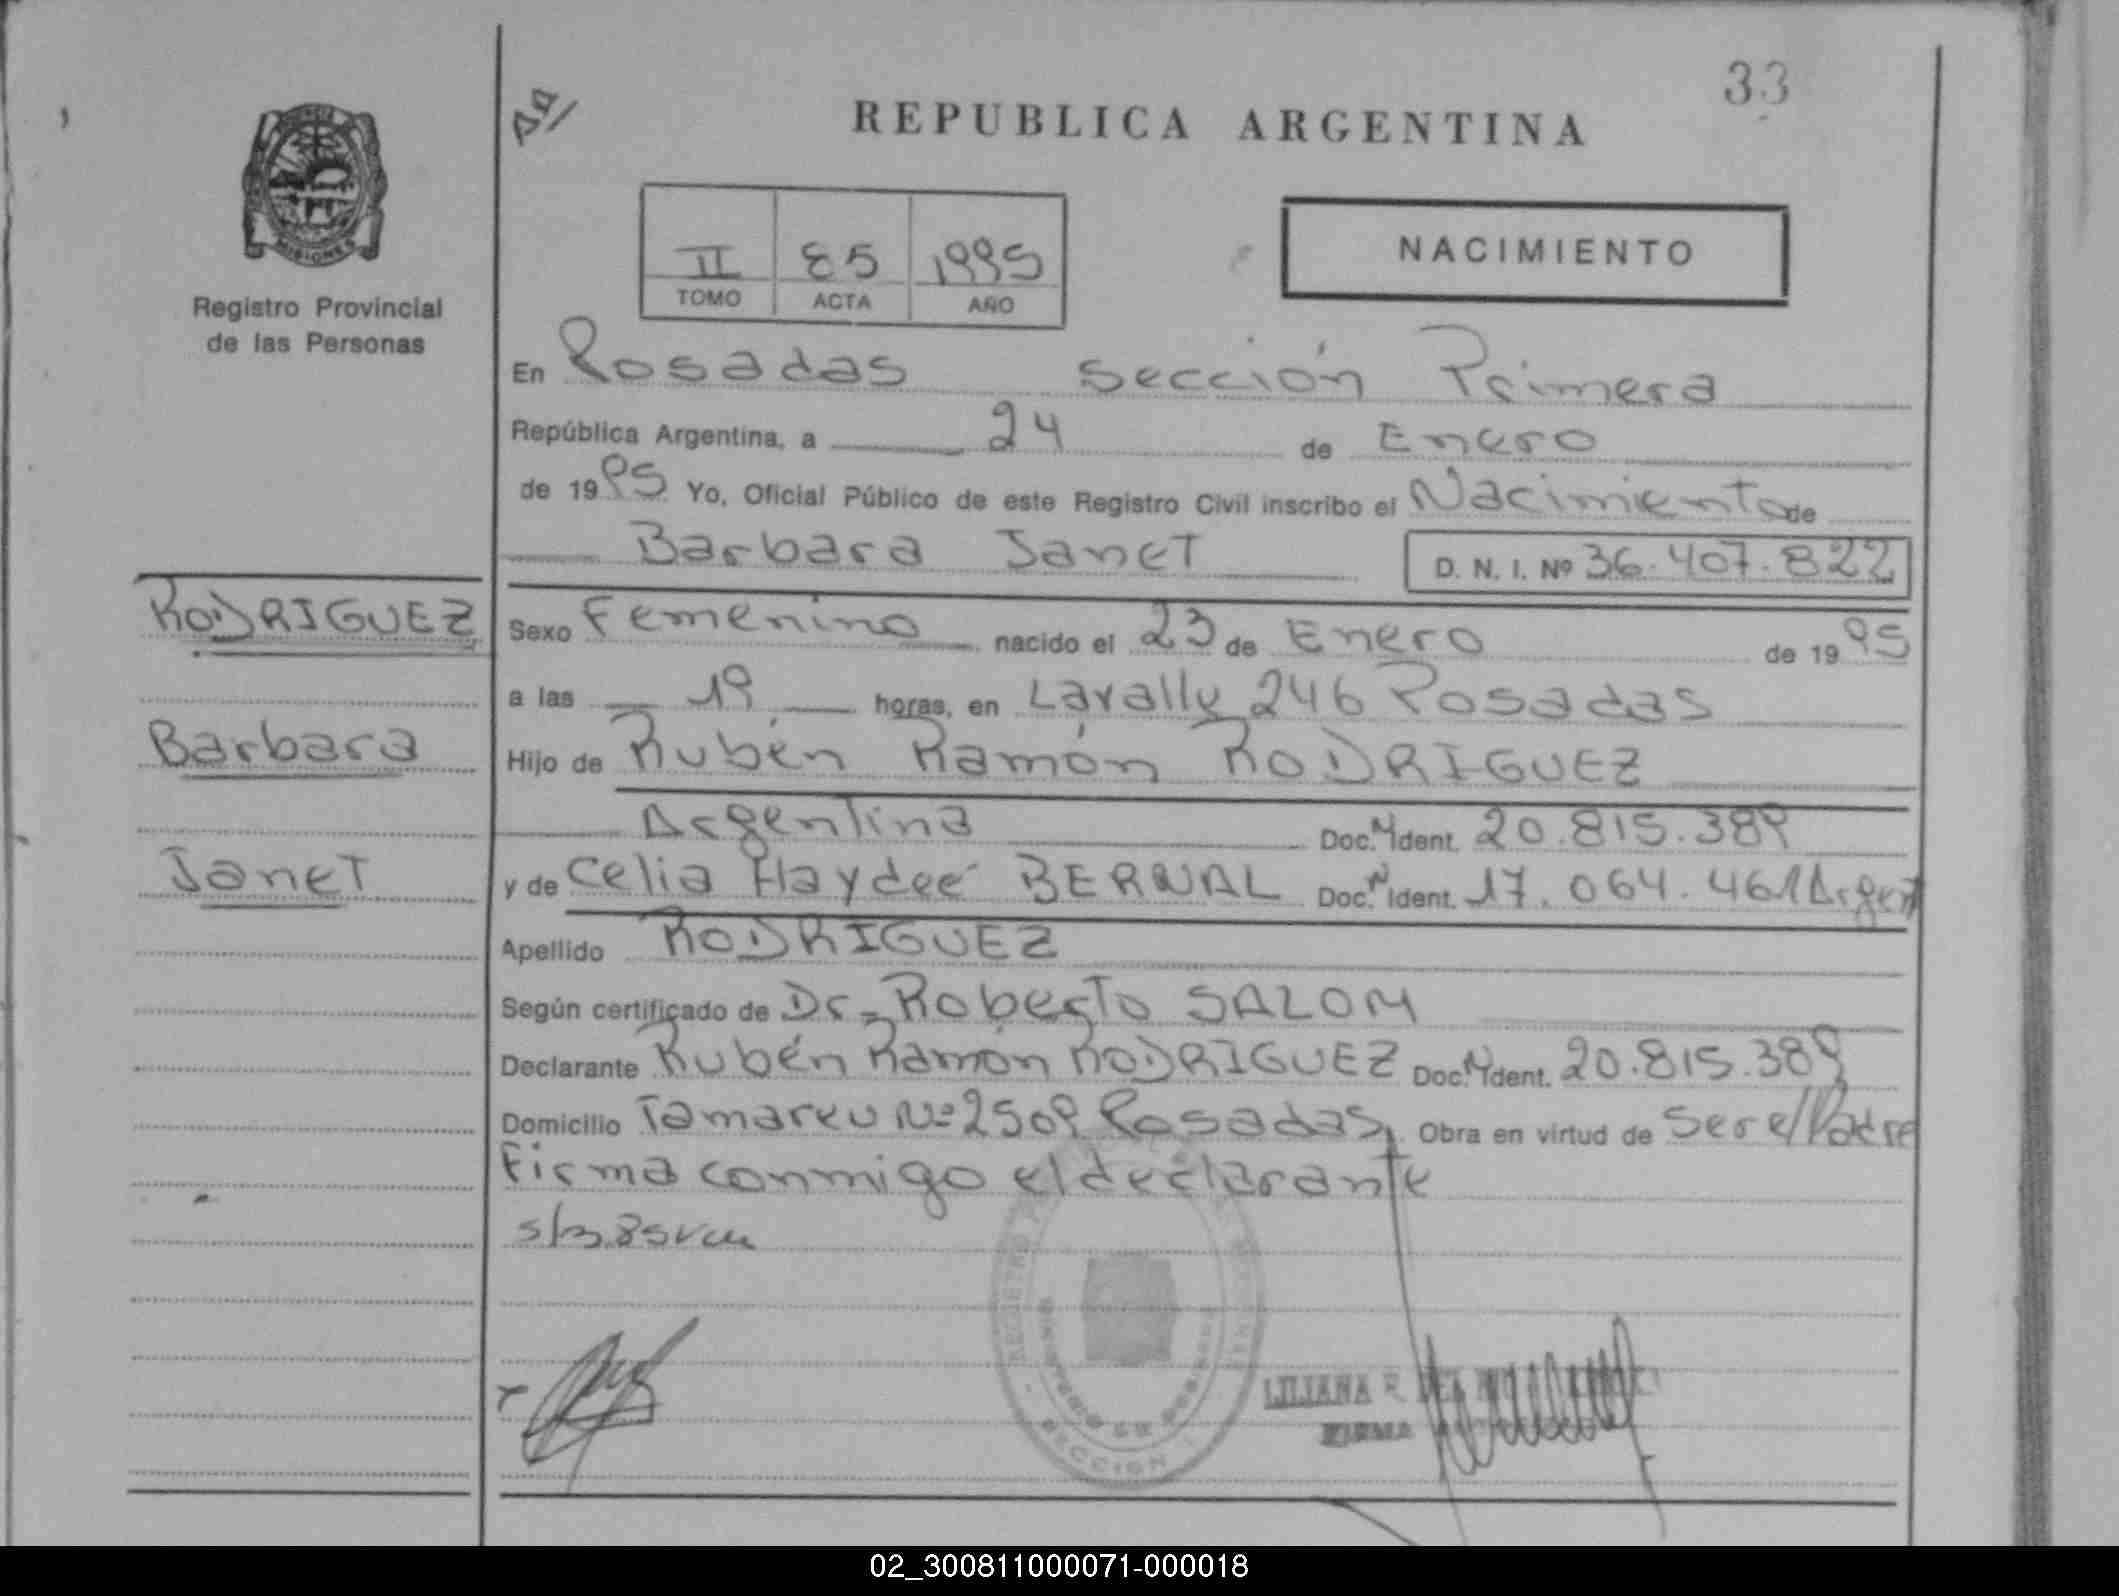 33
REPUBLICA ARGENTINA
MISIONES
Registro Provincial
de las Personas
II 85 1995
TOMO ACTA AÑO
NACIMIENTO
En Posadas Sección Primera
República Argentina, a 24 de Enero
de 1995 Yo, Oficial Público de este Registro Civil inscribo el Nacimiento de
Barbara Janet D. N. I. Nº 36.407.822
RODRIGUEZ
Barbara
Janet
Sexo Femenino nacido el 23 de Enero de 1995
a las 19 horas, en Lavalle 246 Posadas
Hijo de Rubén Ramón RODRIGUEZ
Argentina Doc. N Ident. 20.815.389
y de Celia Haydeé BERNAL Doc. N Ident. 17.064.461 Argent
Apellido RODRIGUEZ
Según certificado de Dr. Roberto SALOM
Declarante Rubén Ramón RODRIGUEZ Doc. N Ident. 20.815.389
Domicilio Tamareu Nº 2509 Posadas, Obra en virtud de ser el Padre
Firma conmigo el declarante
SECCION
LILIANA R.
FIRMA
02_300811000071-000018